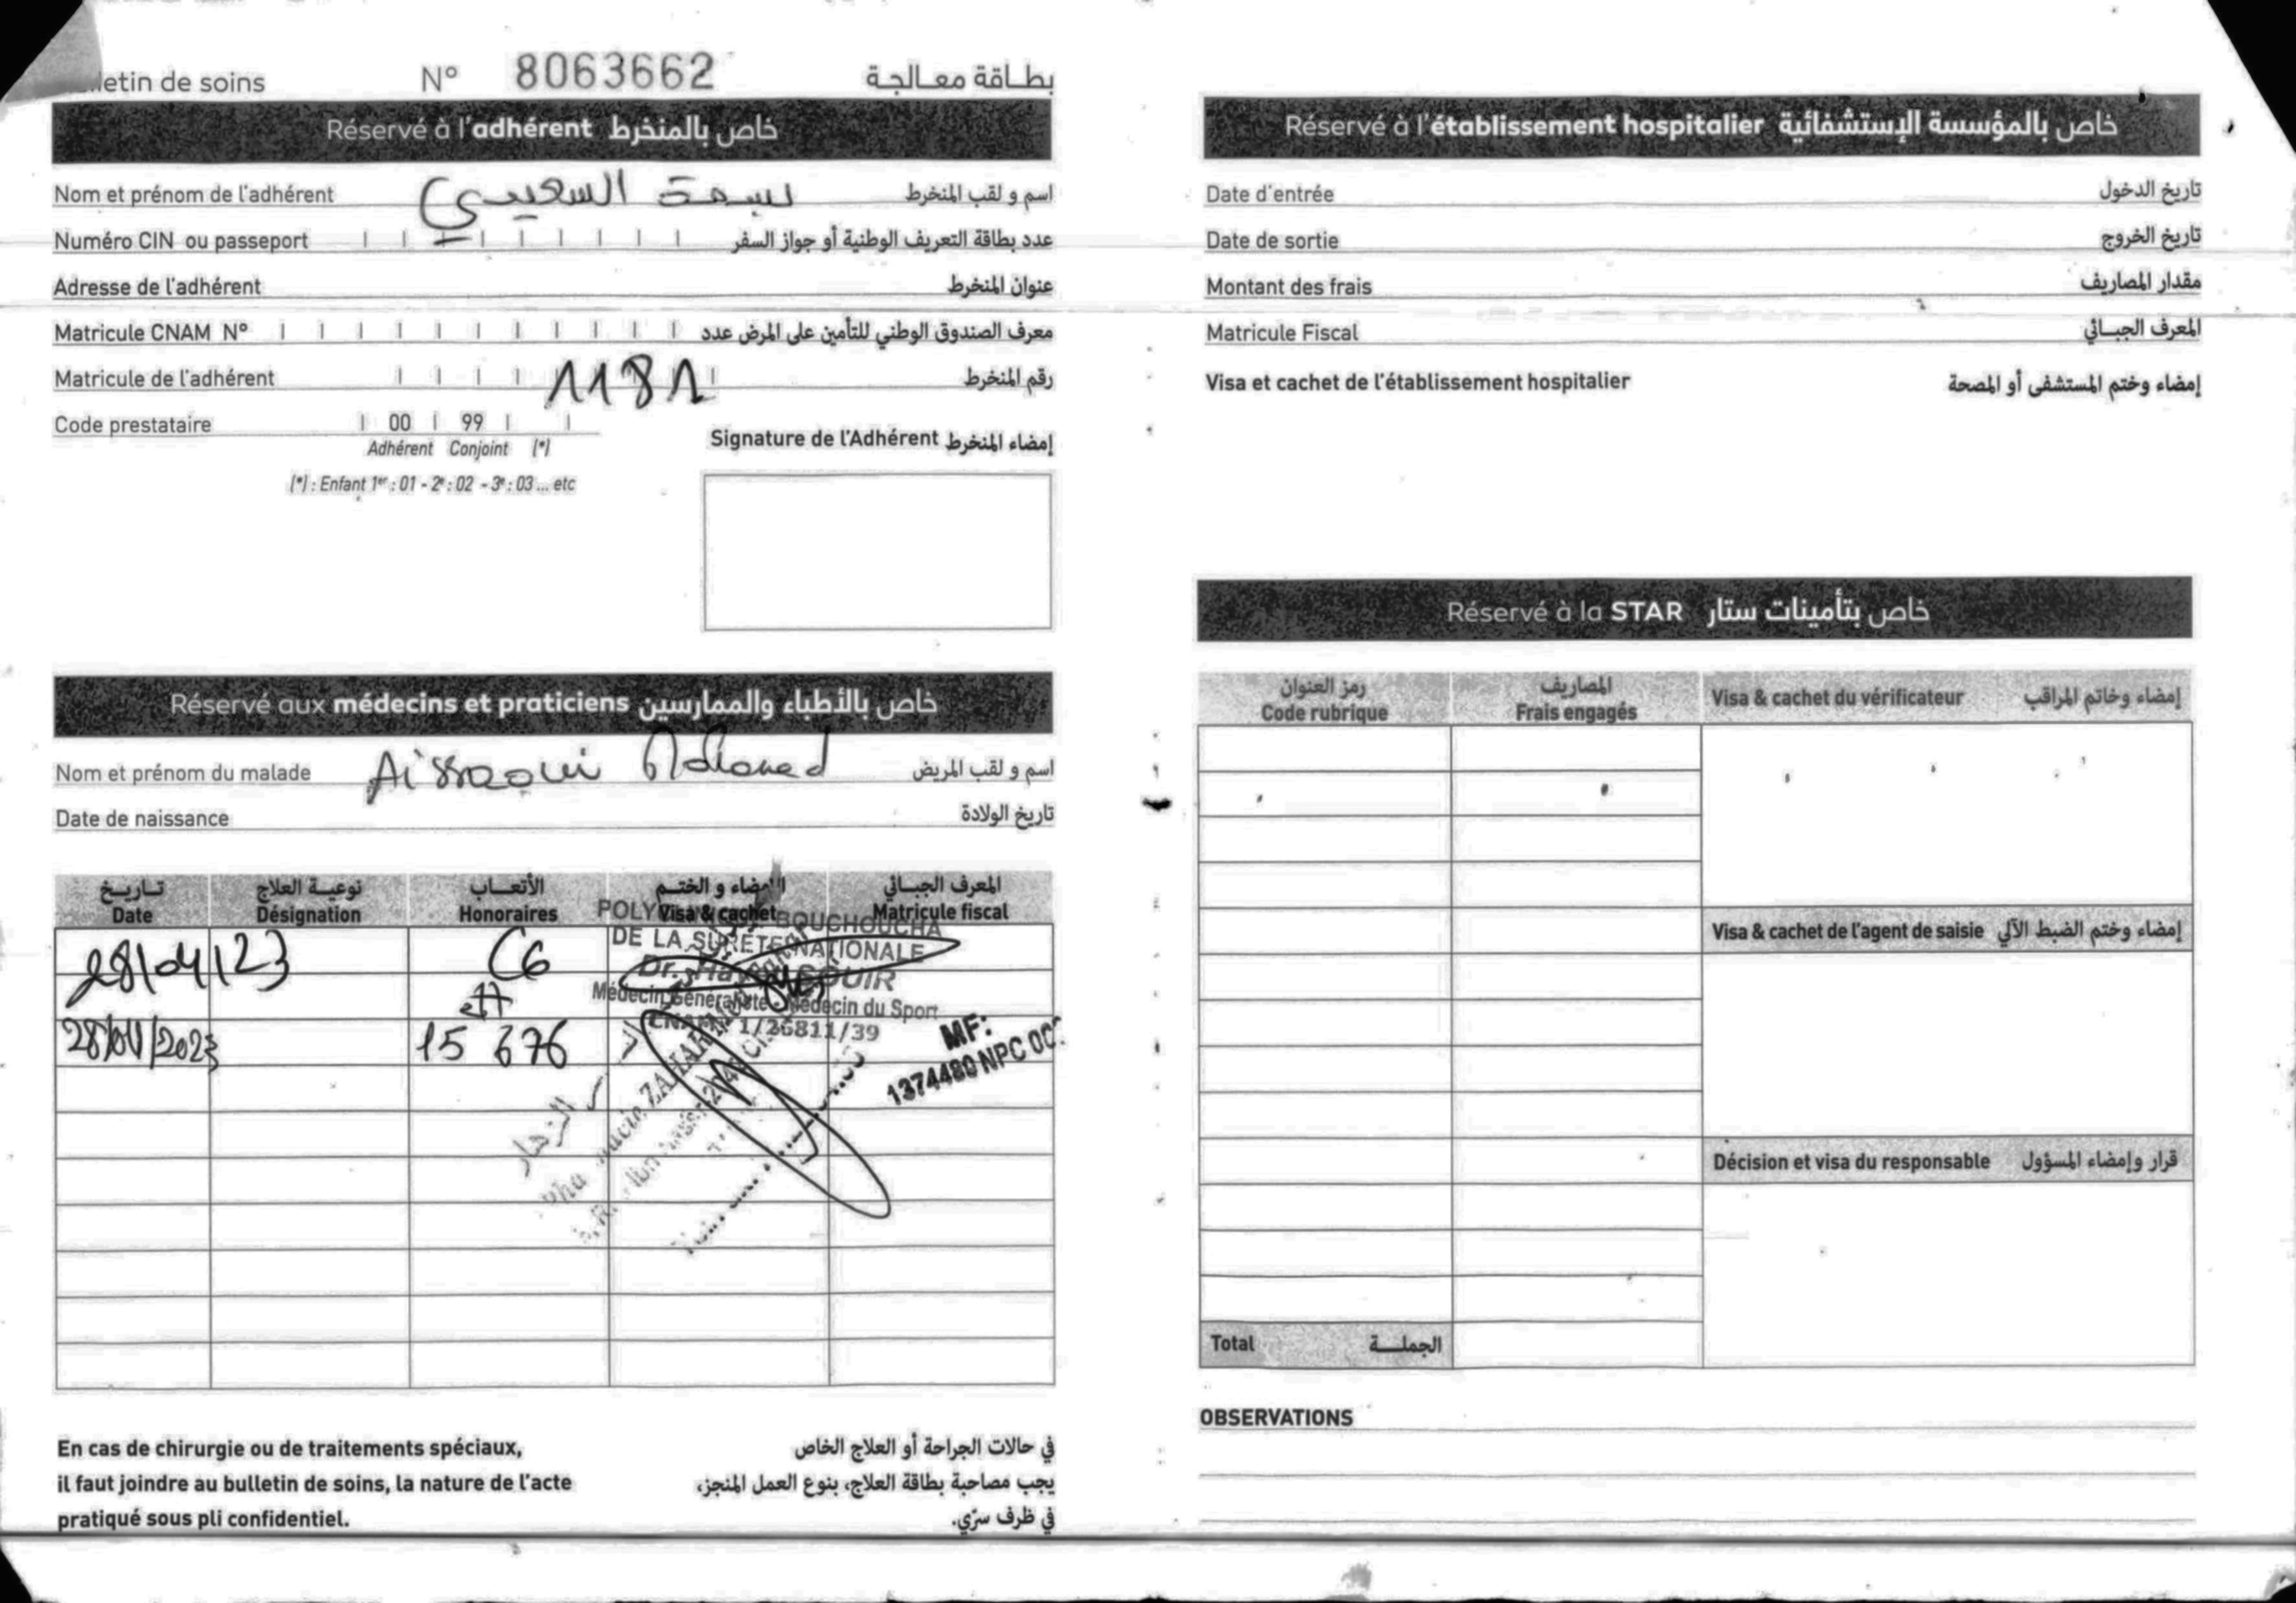 letin de soins N° 8063662 بطاقة معالجة
Réservé à l'adhérent خاص بالمنخرط
Nom et prénom de l'adhérent بسمة السعيدي اسم و لقب المنخرط
Numéro CIN ou passeport عدد بطاقة التعريف الوطنية أو جواز السفر
Adresse de l'adhérent عنوان المنخرط
Matricule CNAM N° معرف الصندوق الوطني للتأمين على المرض عدد
Matricule de l'adhérent 1181 رقم المنخرط
Code prestataire 00 99
Adhérent Conjoint (*)
(*) : Enfant 1er : 01 - 2e : 02 - 3e : 03 ... etc
Signature de l'Adhérent إمضاء المنخرط
Réservé aux médecins et praticiens خاص بالأطباء والممارسين
Nom et prénom du malade Aissaoui Mohamed اسم و لقب المريض
Date de naissance تاريخ الولادة
تاريخ نوعية العلاج الأتعاب الإمضاء و الختم المعرف الجبائي
Date Désignation Honoraires Visa & cachet Matricule fiscal
POLY BOUCHOUCHA
DE LA SURETE NATIONALE
28/04/23 C6
Dr. SOUIR
Médecin Généraliste - Médecin du Sport
CNAM 1/26811/39
28/04/2023 15 676
MF:
1374480 NPC 00
ZAHAR
الزهار
En cas de chirurgie ou de traitements spéciaux,
il faut joindre au bulletin de soins, la nature de l'acte
pratiqué sous pli confidentiel.
في حالات الجراحة أو العلاج الخاص
يجب مصاحبة بطاقة العلاج، بنوع العمل المنجز،
في ظرف سرّي.
Réservé à l'établissement hospitalier خاص بالمؤسسة الإستشفائية
Date d'entrée تاريخ الدخول
Date de sortie تاريخ الخروج
Montant des frais مقدار المصاريف
Matricule Fiscal المعرف الجبائي
Visa et cachet de l'établissement hospitalier إمضاء وختم المستشفى أو المصحة
Réservé à la STAR خاص بتأمينات ستار
رمز العنوان المصاريف
Code rubrique Frais engagés Visa & cachet du vérificateur إمضاء وخاتم المراقب
Visa & cachet de l'agent de saisie إمضاء وختم الضبط الآلي
Décision et visa du responsable قرار وإمضاء المسؤول
Total الجملة
OBSERVATIONS